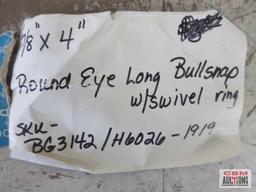 7/8" x 4"
Round Eye Long Bullsnap
w/swivel ring
SKU-
BG3142/H6026-1919
CBM
AUCTIONS